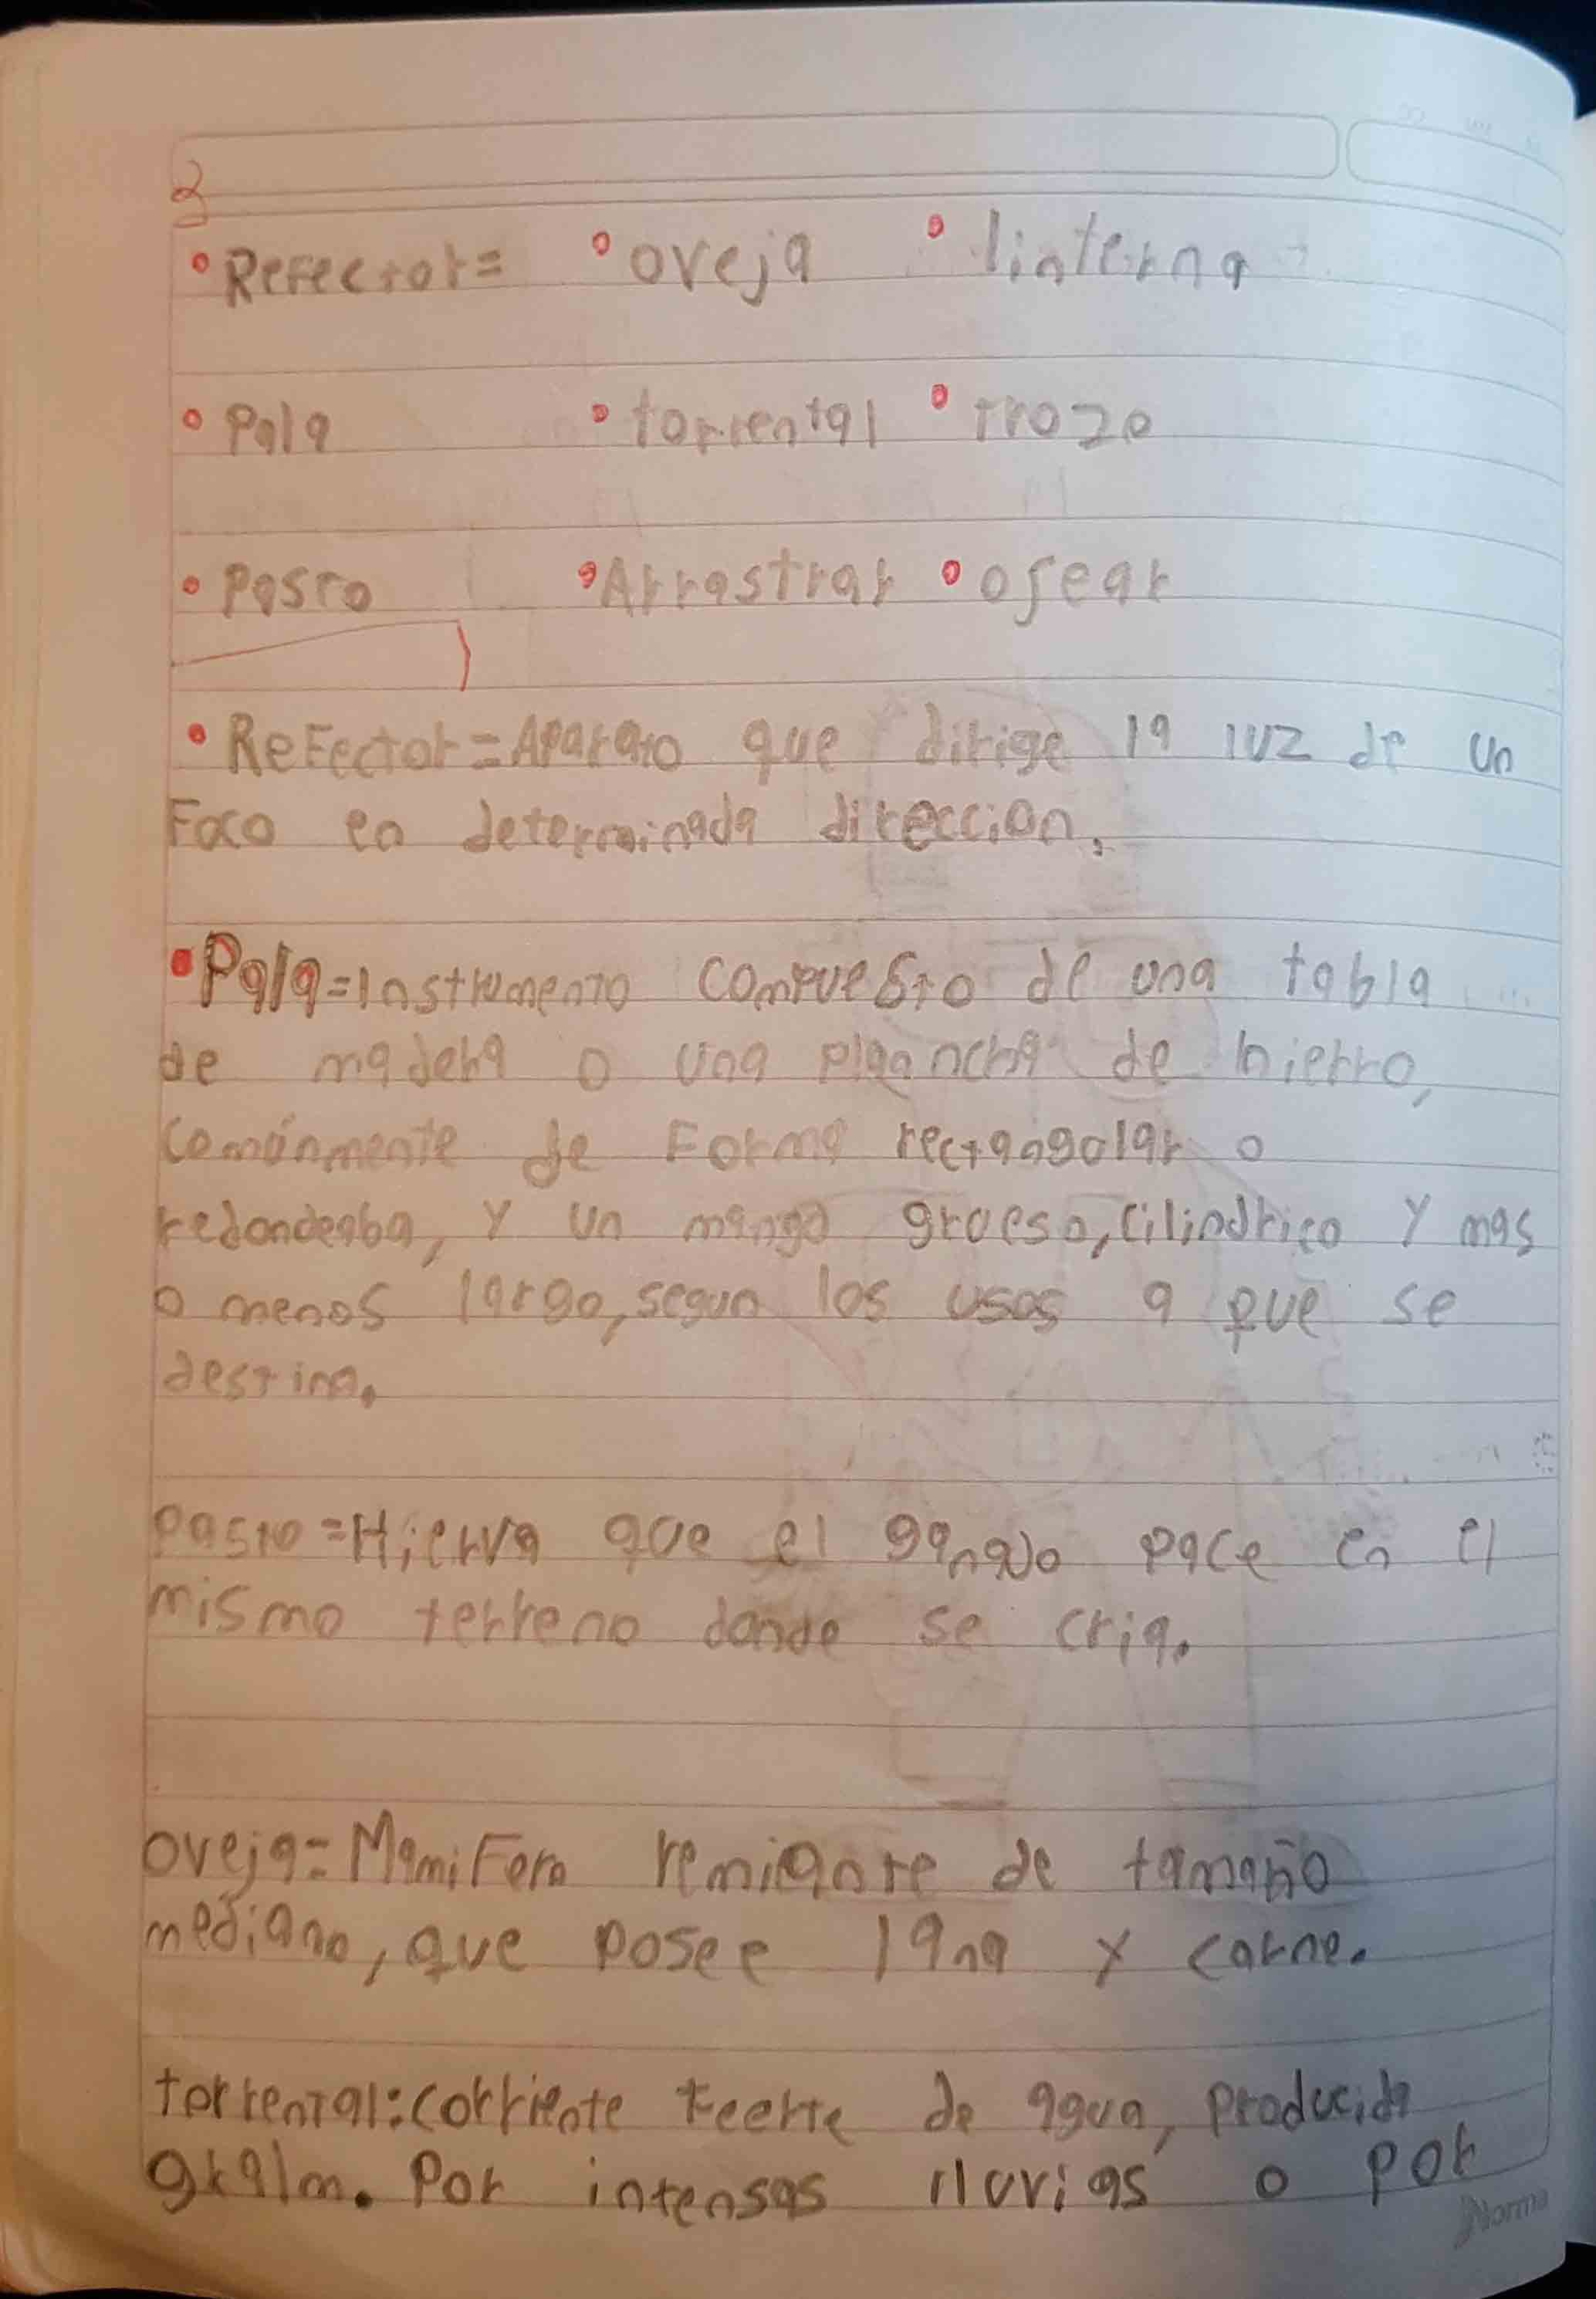 2
• Refector= • oveja • linterna
• Pala • torrental • trozo
• Pasto • Arrastrar • osear
• ReFector=Aparato que dirige la luz de un
Foco en determinada direccion.
• Pala=Instrumento compuesto de una tabla
de madera o una plaancha de hierro,
comúnmente de Forma rectangolar o
redondeaba, y un mango grueso, cilindrico y mas
o menos largo, segun los usos a que se
destina.
pasto=Hierva que el ganado pace en el
mismo terreno donde se cria.
oveja=MamiFero remiante de tamaño
mediano, que posee lana y carne.
torrental:corriente Feerte de agua, producida
gralm. Por intensas lluvias o por
Norma